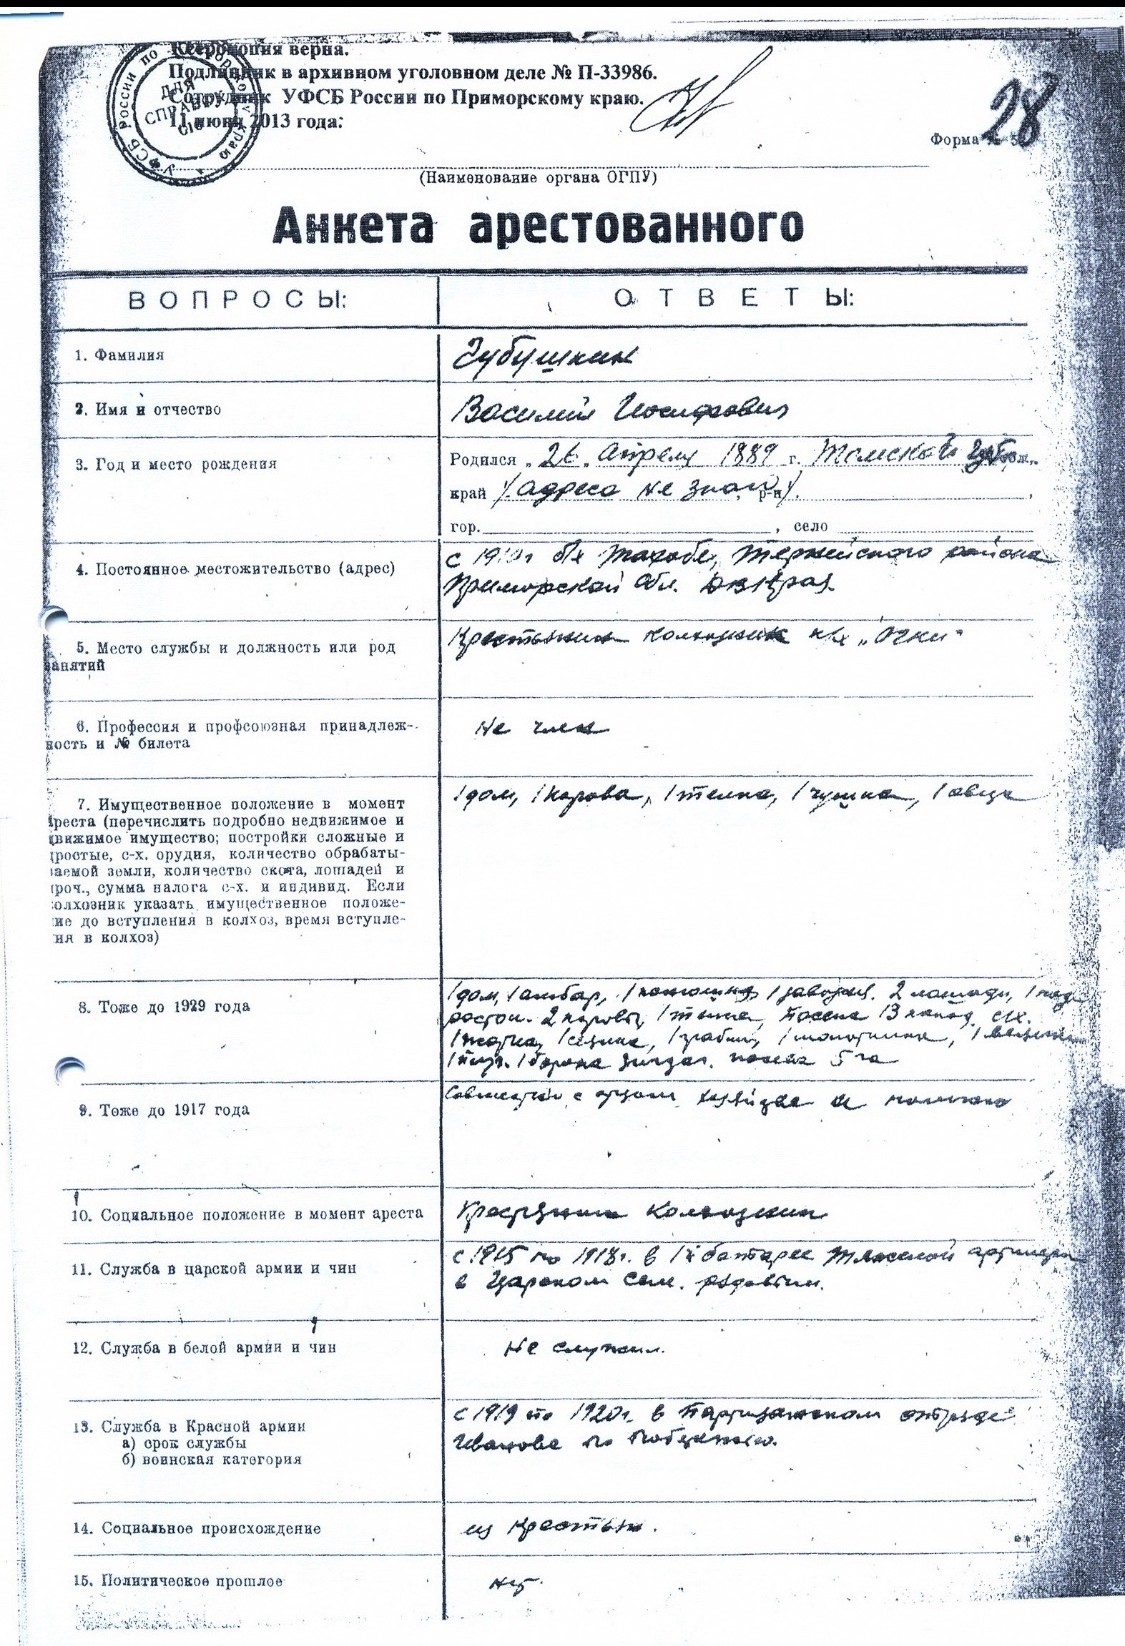 Ксерокопия верна.
Подлинник в архивном уголовном деле № П-33986.
Сотрудник УФСБ России по Приморскому краю.
11 июня 2013 года:
УФСБ России по Приморскому краю
ДЛЯ
СПРАВОК
28
Форма № 5
(Наименование органа ОГПУ)
Анкета арестованного
ВОПРОСЫ:
ОТВЕТЫ:
1. Фамилия
Губушкин
2. Имя и отчество
Василий Иосифович
3. Год и место рождения
Родился 26 Апреля 1889 г. Томской губ.
край /адреса не знаю/ р-н
гор. , село
4. Постоянное местожительство (адрес)
с 1910г Тахобе, Тернейского района
Приморской Обл. ДВКрая
5. Место службы и должность или род
занятий
Крестьянин колхозник к/х „Огни"
6. Профессия и профсоюзная принадлеж-
ность и № билета
Не член
7. Имущественное положение в момент
ареста (перечислить подробно недвижимое и
движимое имущество; постройки сложные и
простые, с-х. орудия, количество обрабаты-
ваемой земли, количество скота, лошадей и
проч., сумма налога с-х. и индивид. Если
колхозник указать имущественное положе-
ние до вступления в колхоз, время вступле-
ния в колхоз)
1 дом, 1 корова, 1 телка, 1 чушка, 1 овца
8. Тоже до 1929 года
1 дом, 1 амбар, 1 конюшня, 1 завозня. 2 лошади, 1
2 коровы, 1 телка, с/х.
1 жатка, 1 сеялка, 1 грабли, 1 молотилка, 1
1 плуг. 1 борона посев 5 га
9. Тоже до 1917 года
Совместно с отцом
10. Социальное положение в момент ареста
Крестьянин Колхозник
11. Служба в царской армии и чин
с 1915 по 1918г. в 1й батарее Тяжелой артилерии
в Царском Селе. рядовым.
12. Служба в белой армии и чин
Не служил.
13. Служба в Красной армии
а) срок службы
б) воинская категория
с 1919 по 1920г. в партизанском отряде
Иванова
14. Социальное происхождение
из Крестьян.
15. Политическое прошлое
нет.